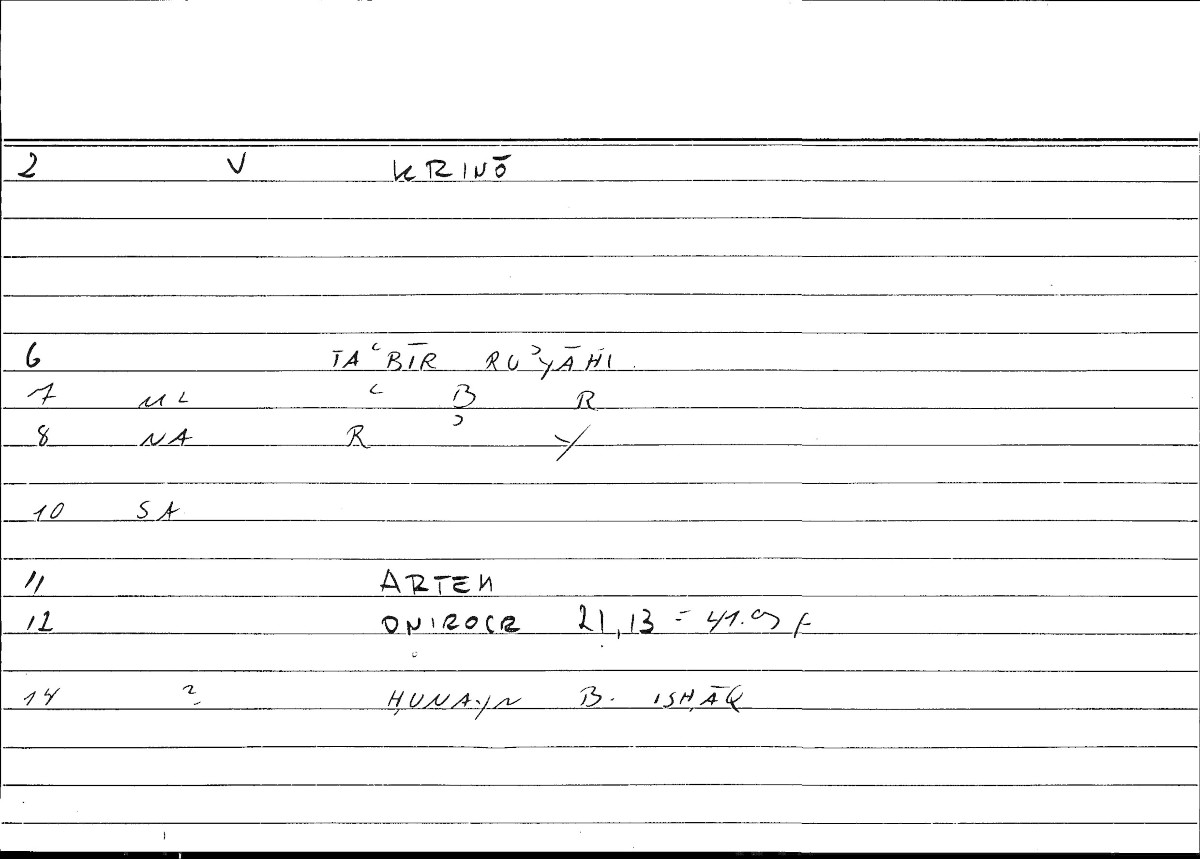 2 V KRINŌ
6 TAʿBĪR RUʾYĀHI.
7 ML ʿ B R
8 NA R ʾ Y
10 SA
11 ARTEM
12 ONIROCR 21,13 = 41.
14 ? ḤUNAYN B. ISḤĀQ